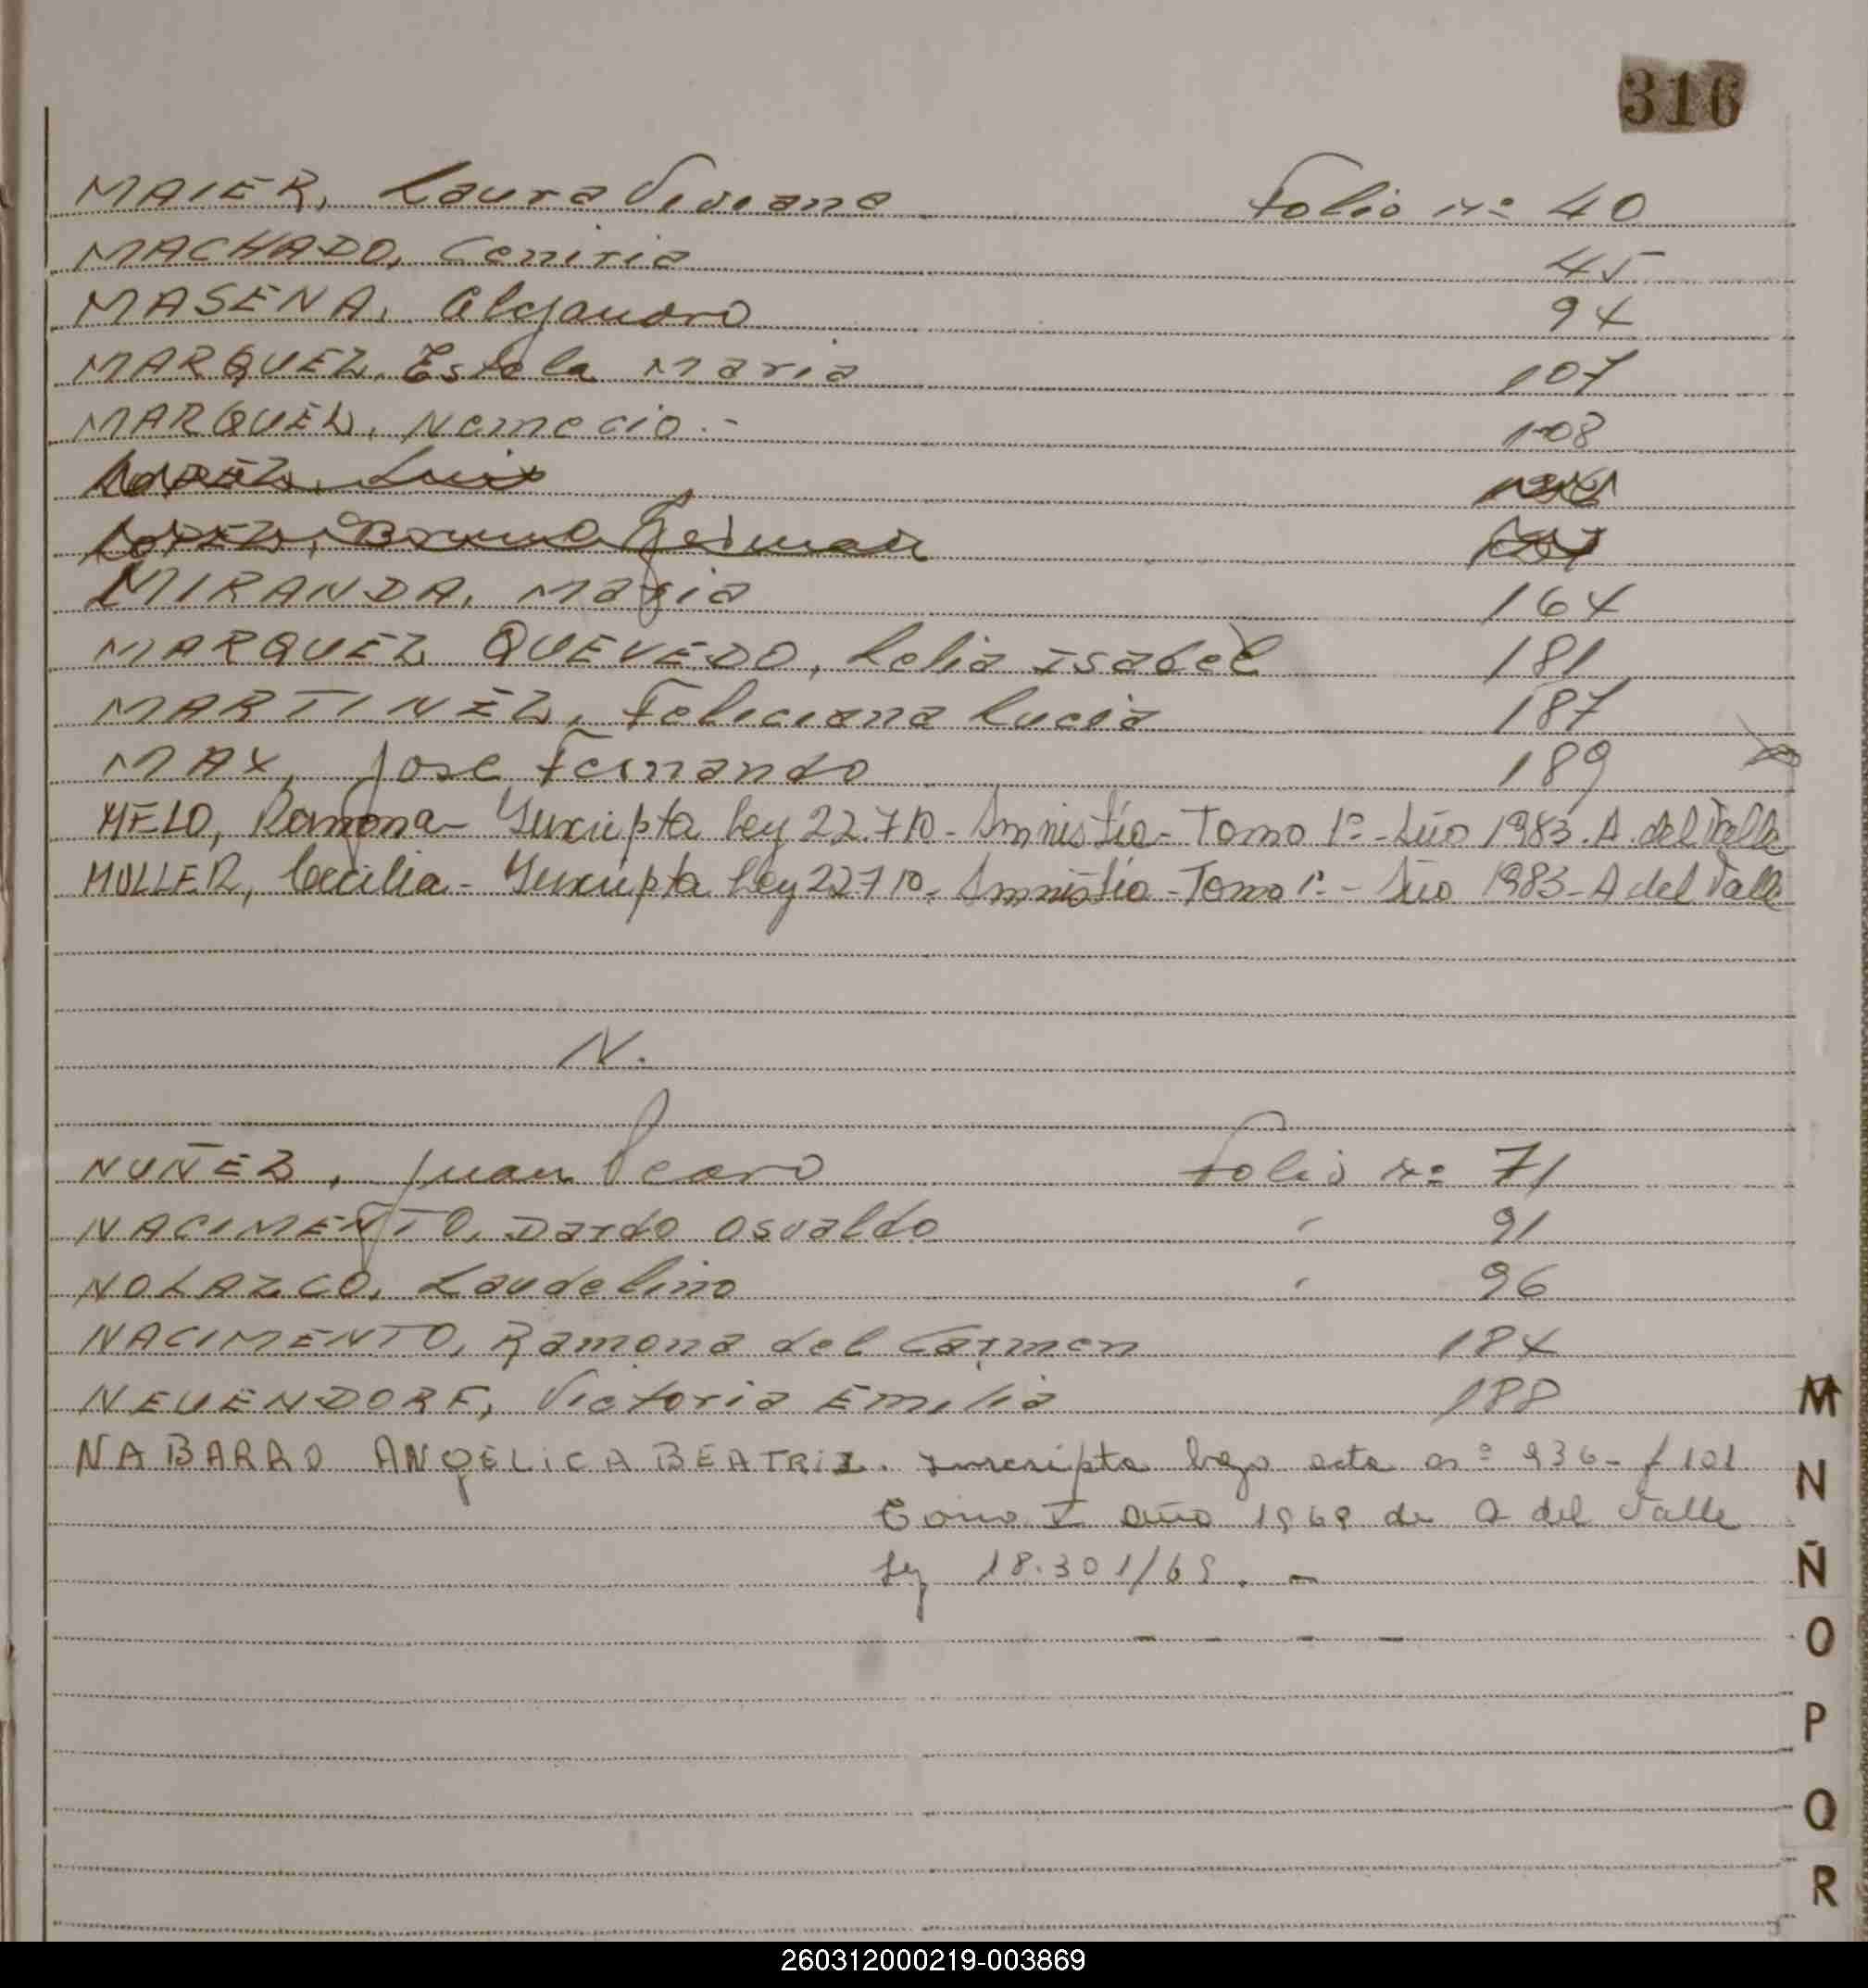 316
MAIER, Laura Viviana Folio nº 40
MACHADO, Ceniria 45
MASENA, Alejandro 94
MARQUEZ, Estela Maria 107
MARQUEZ, Nemecio.- 108
LOPEZ, Luis
LOPEZ, Bruno German
MIRANDA, Maria 164
MARQUEZ QUEVEDO, Lelia Isabel 181
MARTINEZ, Feliciana Lucia 187
MAX, Jose Fernando 189
MELO, Ramona- Inscripta Ley 22.710- Amnistía- Tomo 1º- Año 1983. A. del Valle
MULLER, Cecilia- Inscripta Ley 22710- Amnistía- Tomo 1º- Año 1983- A del Valle
N.
NUÑEZ, Juan Pedro Folio nº 71
NACIMENTO, Dardo Osvaldo " 91
NOLAZCO, Laudelino " 96
NACIMENTO, Ramona del Carmen 184
NEUENDORF, Victoria Emilia 188
NABARRO ANGELICA BEATRIZ. Inscripta bajo acta nº 936- f 101
Tomo I año 1969 de A del Valle
Ley 18.301/69. -
- - - -
M
N
Ñ
O
P
Q
R
260312000219-003869